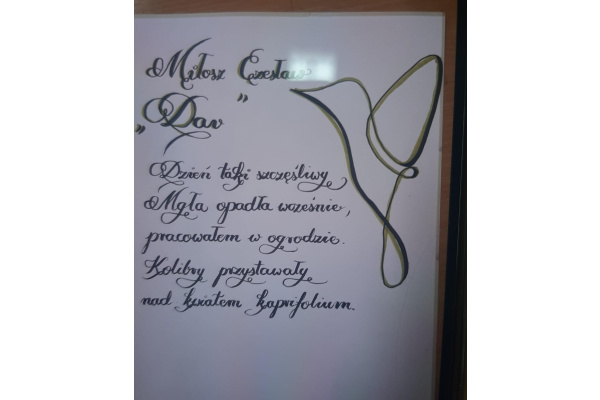 Miłosz Czesław
„Dar"
Dzień taki szczęśliwy
Mgła opadła wcześnie,
pracowałem w ogrodzie.
Kolibry przystawały
nad kwiatem kaprifolium.